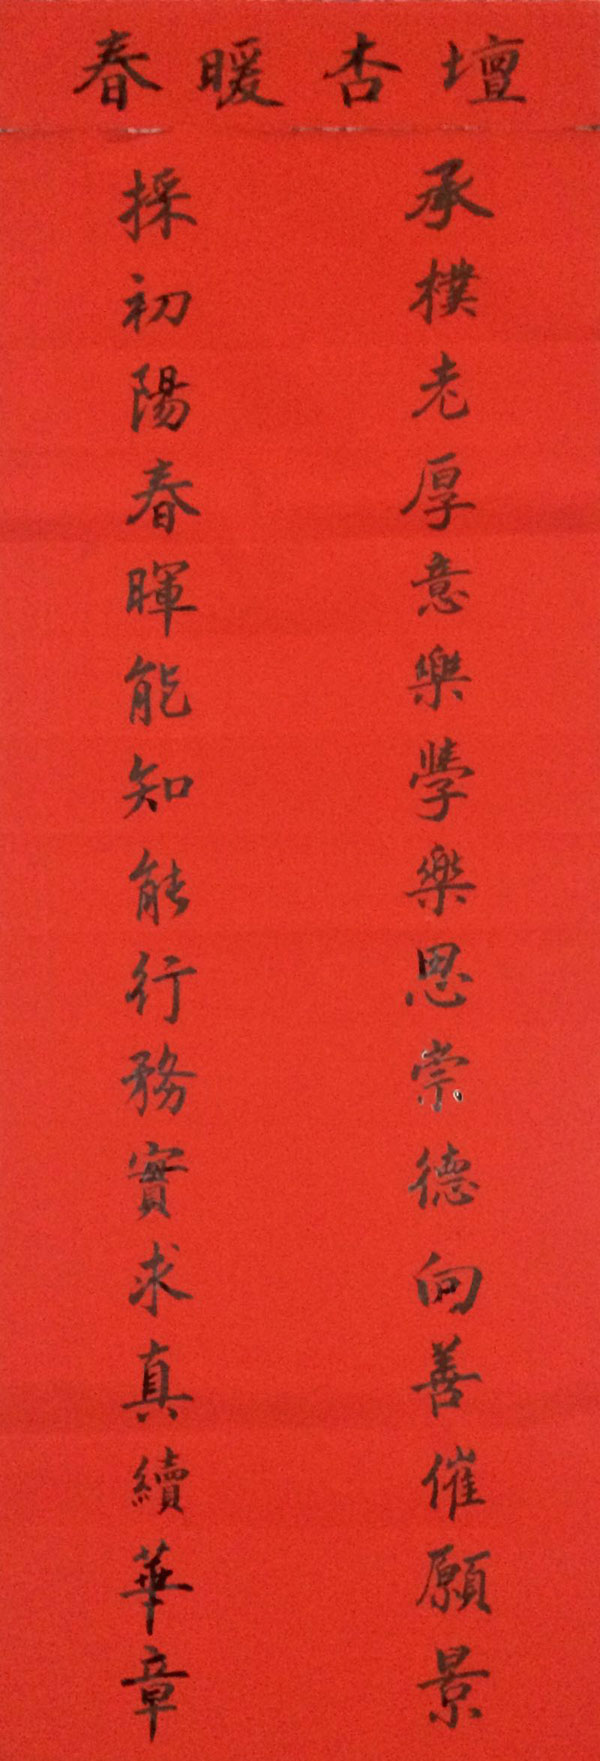 春暖杏壇
承樸老厚意樂學樂思崇德向善催願景
採初陽春暉能知能行務實求真續華章